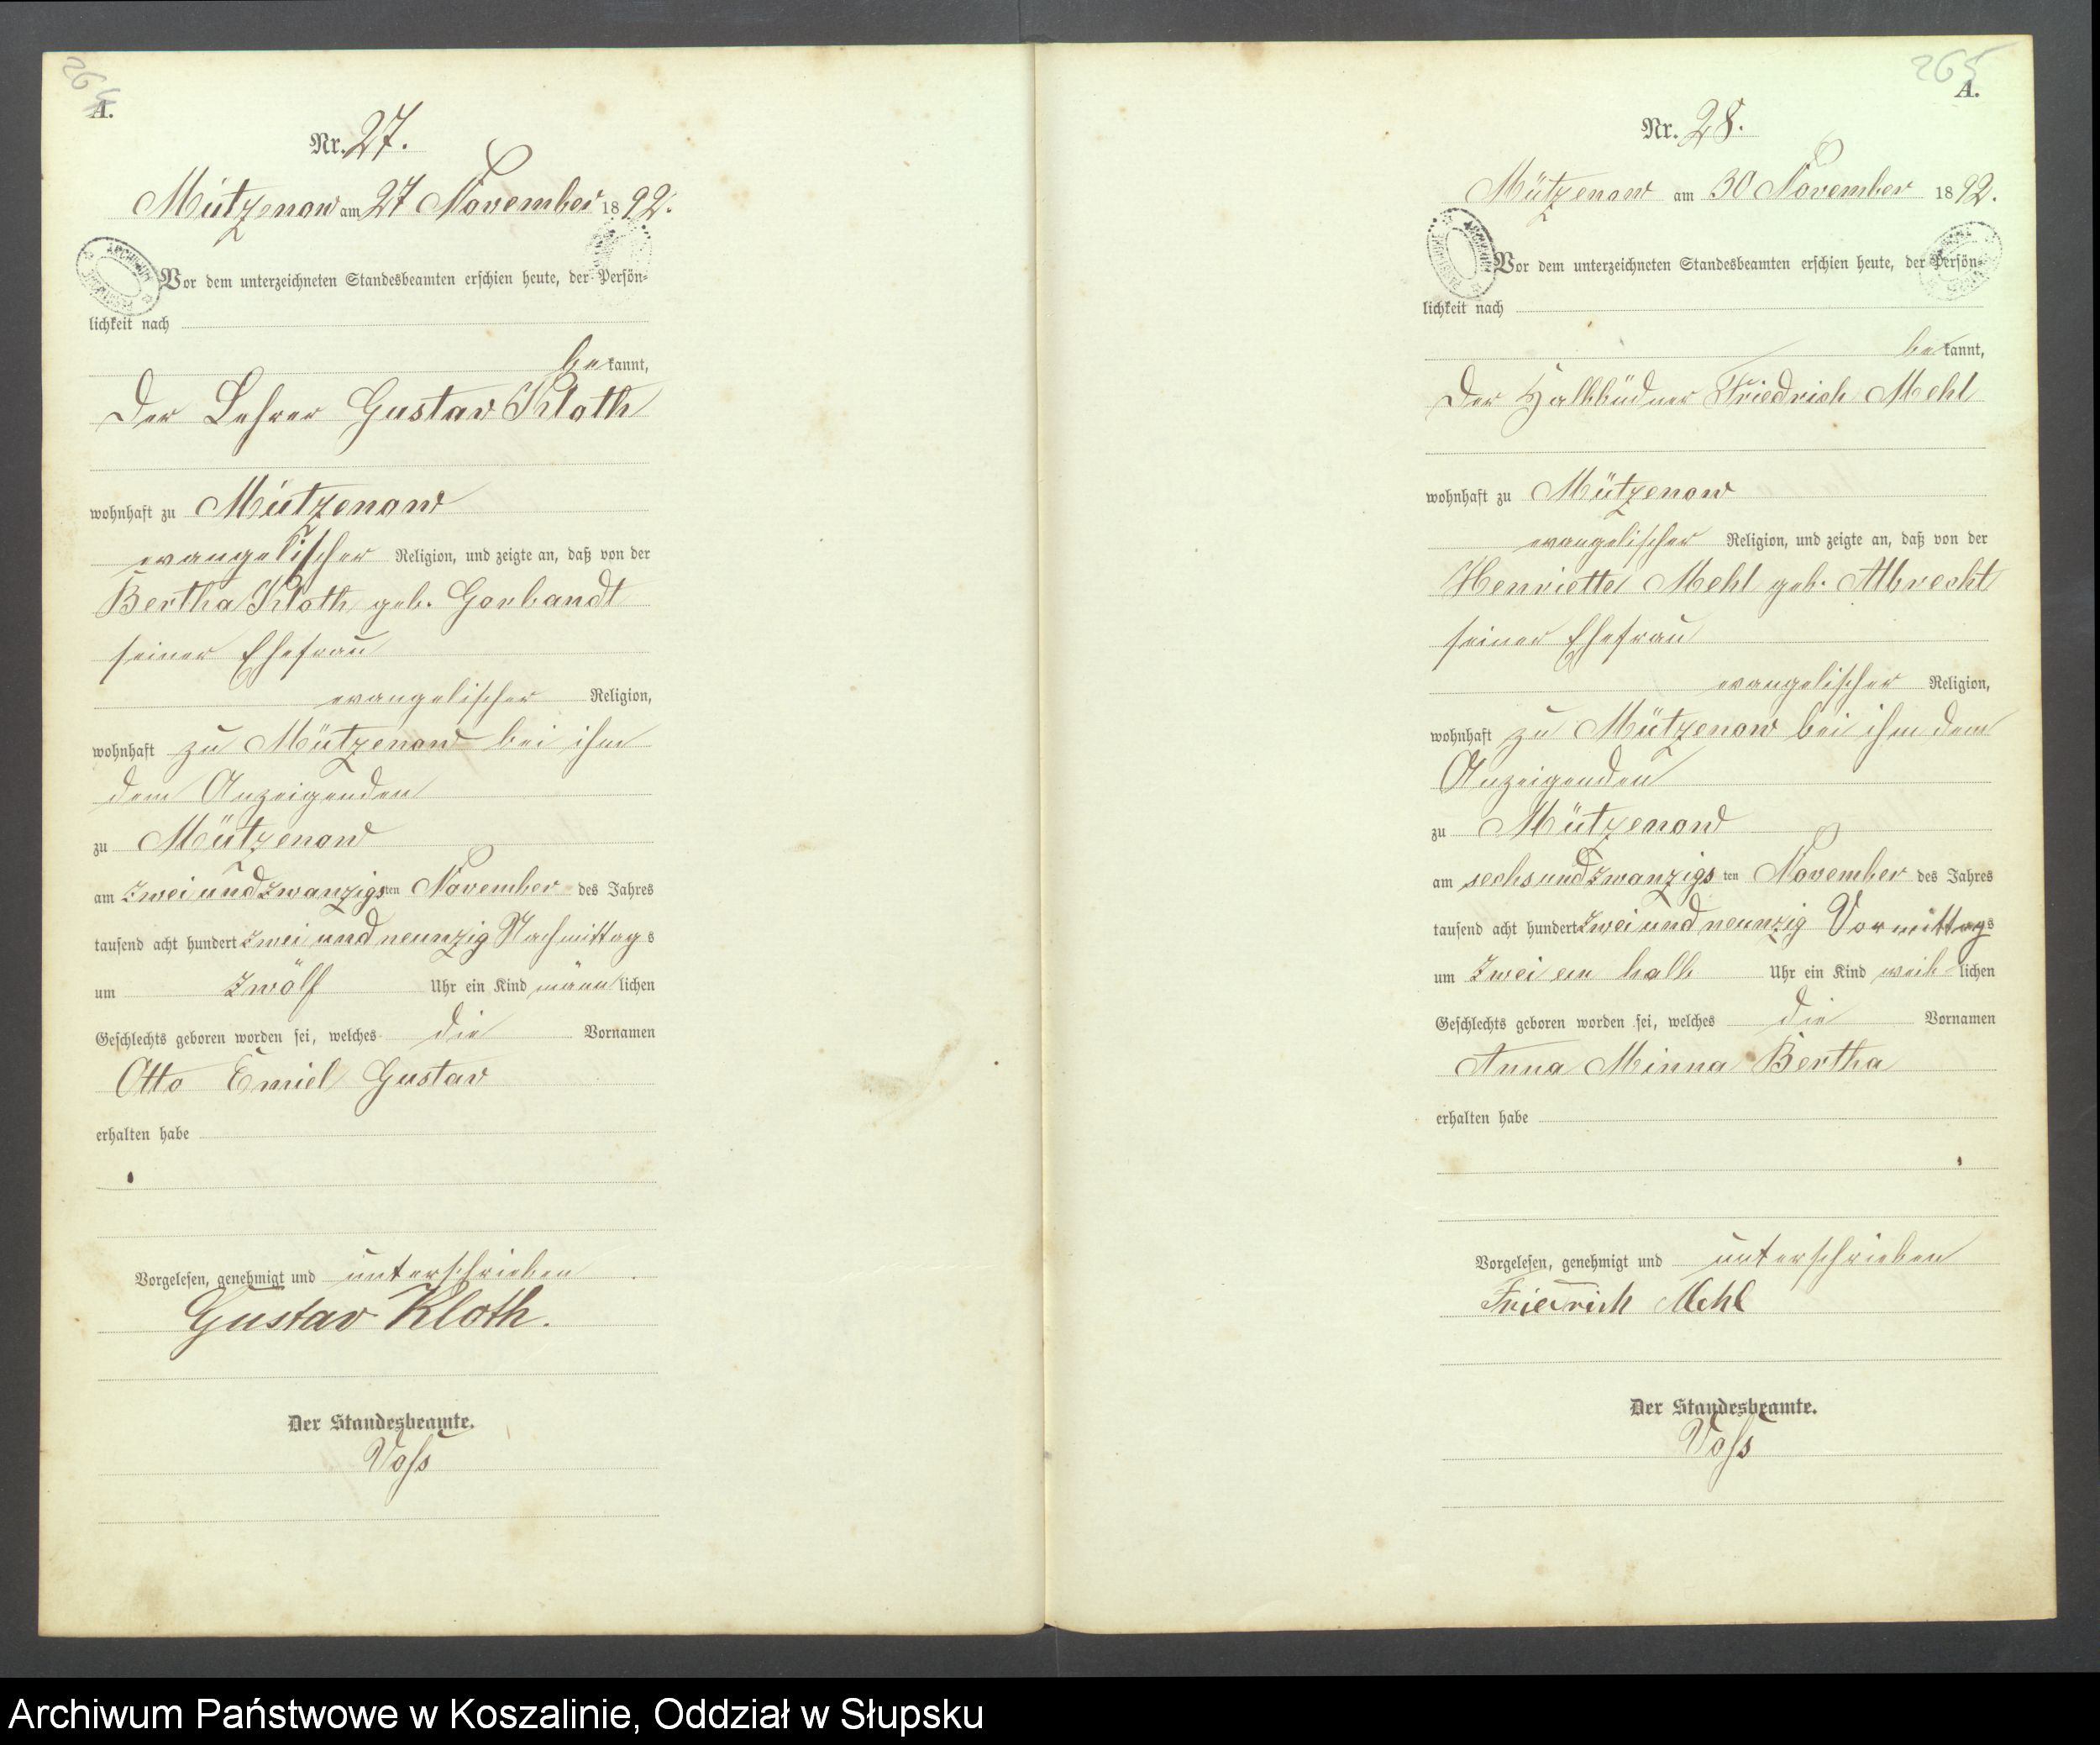 264
A.
Nr. 27.
Mützenow am 27 November 1892.
Vor dem unterzeichneten Standesbeamten erschien heute, der Persön-
lichkeit nach
bekannt,
Der Lehrer Gustav Kloth
wohnhaft zu Mützenow
evangelischer Religion, und zeigte an, daß von der
Bertha Kloth geb. Gorbandt
seiner Ehefrau
evangelischer Religion,
wohnhaft zu Mützenow bei ihm
dem Anzeigenden
zu Mützenow
am zwei und zwanzigsten November des Jahres
tausend acht hundert zwei und neunzig Nachmittags
um zwölf Uhr ein Kind männlichen
Geschlechts geboren worden sei, welches die Vornamen
Otto Emiel Gustav
erhalten habe
Vorgelesen, genehmigt und unterschrieben
Gustav Kloth.
Der Standesbeamte.
Voß
265
A.
Nr. 28.
Mützenow am 30 November 1892.
Vor dem unterzeichneten Standesbeamten erschien heute, der Persön-
lichkeit nach
bekannt,
Der Halbbüdner Friedrich Mehl
wohnhaft zu Mützenow
evangelischer Religion, und zeigte an, daß von der
Henriette Mehl geb. Albrecht
seiner Ehefrau
evangelischer Religion,
wohnhaft zu Mützenow bei ihm dem
Anzeigenden
zu Mützenow
am sechsundzwanzigsten November des Jahres
tausend acht hundert zwei und neunzig Vormittags
um zwei ein halb Uhr ein Kind weiblichen
Geschlechts geboren worden sei, welches die Vornamen
Anna Minna Bertha
erhalten habe
Vorgelesen, genehmigt und unterschrieben
Friedrich Mehl
Der Standesbeamte.
Voß
Archiwum Państwowe w Koszalinie, Oddział w Słupsku